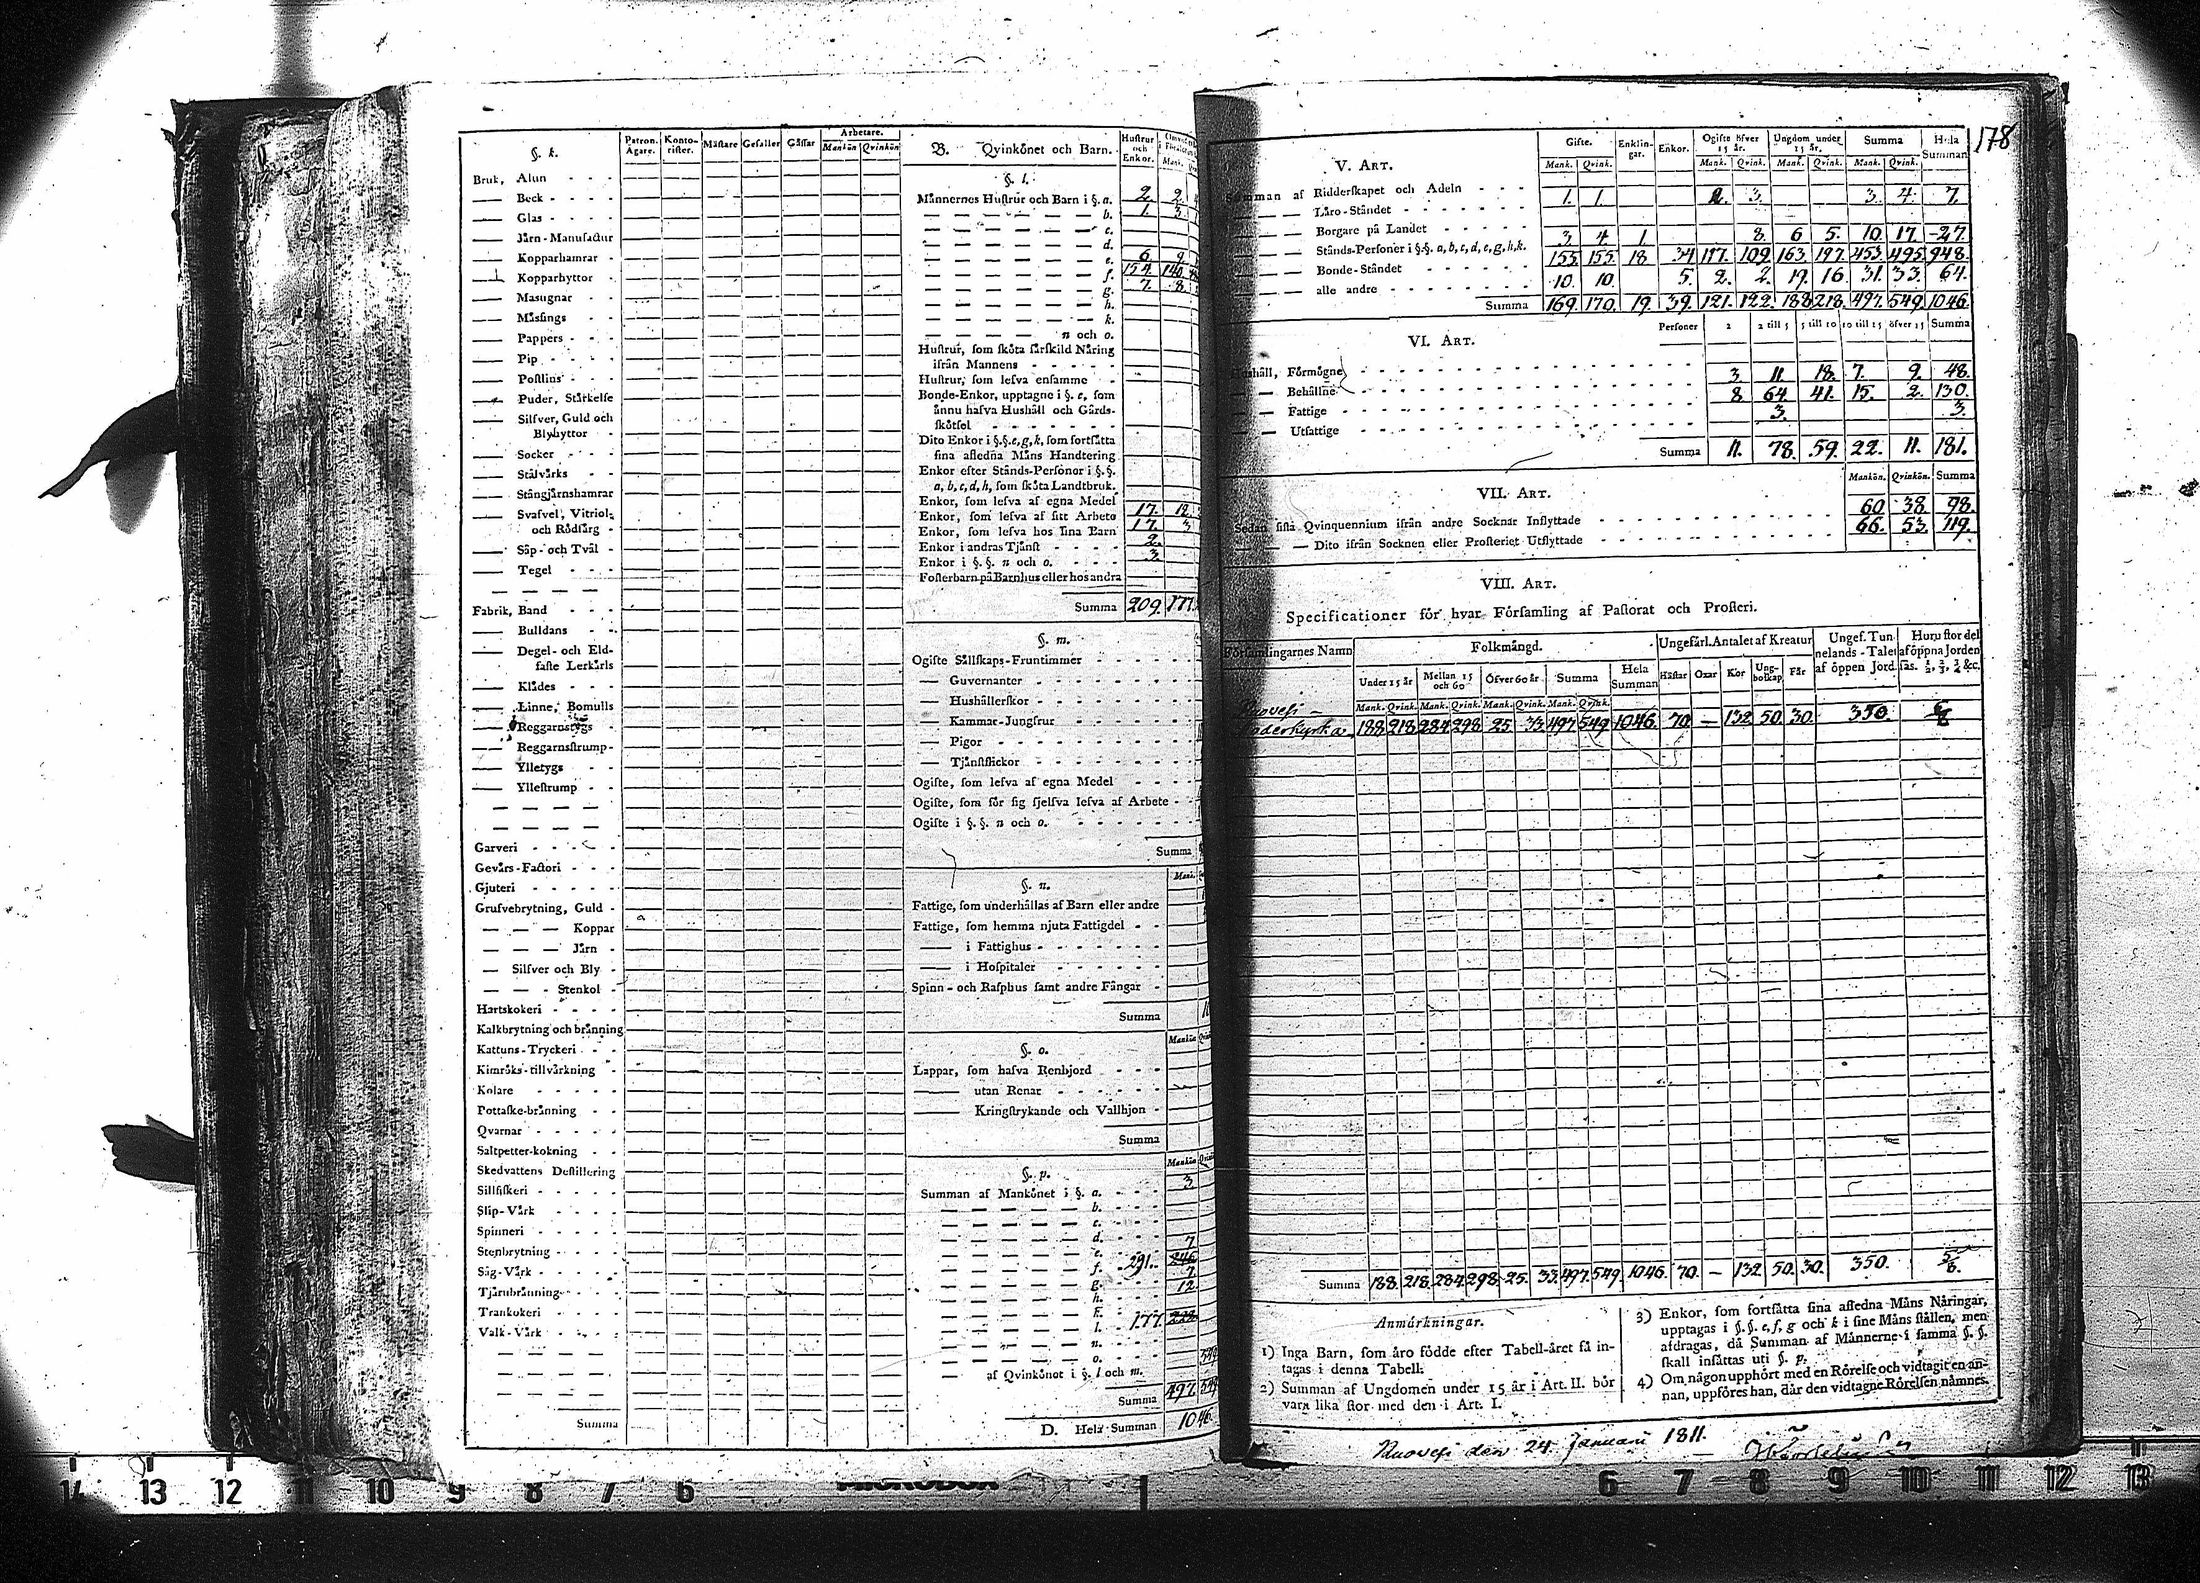 §. k.
Patron. Ägare. Konto-rister. Mästare Gesäller Gåssar Arbetare. Mankön Qvinkön
Bruk, Alun
Beck
Glas
Järn-Manufactur
Kopparhamrar
Kopparhyttor
Masugnar
Mässings
Pappers
Pip
Postlins
Puder, Stärkelse
Silfver, Guld och
Blyhyttor
Socker
Stålvärks
Stångjärnshamrar
Svafvel, Vitriol
och Rödfärg
Såp- och Tväl
Tegel
Fabrik, Band
Bulldans
Degel- och Eld-
faste Lerkärls
Klådes
Linne, Bomulls
Reggarnstygs
Reggarnsstrump
Ylletygs
Yllestrump
Garveri
Gevärs-Factori
Gjuteri
Grufvebrytning, Guld
Koppar
Järn
Silfver och Bly
Stenkol
Hartskokeri
Kalkbrytning och bränning
Kattuns-Tryckeri
Kimröks-tillvärkning
Kolare
Pottaske-bränning
Qvarnar
Saltpetter-kokning
Skedvattens Destillering
Sillfiskeri
Slip-Värk
Spinneri
Stenbrytning
Såg-Värk
Tjärubränning
Trankokeri
Valk-Värk
Summa
B. Qvinkönet och Barn. Hustrur och Enkor.
§. l.
Männernes Hustrur och Barn i §. a. 2. 2.
b. 1. 3.
c.
d.
e. 6. 9.
f. 154. 140.
g. 7. 8.
h.
k.
n och o.
Hustrur, som sköta särskild Näring
ifrån Mannens
Hustrur, som lefva ensamme
Bonde-Enkor, upptagne i §. e, som
ännu hafva Hushåll och Gårds-
skötsel
Dito Enkor i §.§. e, g, k, som fortsätta
sina afledna Mäns Handtering
Enkor efter Stånds-Personer i §.§.
a, b, c, d, h, som sköta Landtbruk.
Enkor, som lefva af egna Medel
Enkor, som lefva af sitt Arbete 17. 12.
Enkor, som lefva hos sina Barn 17. 3
Enkor i andras Tjänst 2.
Enkor i §.§. n och o. 3.
Fosterbarn på Barnhus eller hos andra
Summa 209. 177.
§. m.
Ogifte Sällskaps-Fruntimmer
Guvernanter
Hushållerskor
Kammar-Jungfrur
Pigor
Tjänstflickor
Ogifte, som lefva af egna Medel
Ogifte, som för sig sjelfva lefva af Arbete
Ogifte i §.§. n och o.
Summa
§. n.
Fattige, som underhållas af Barn eller andre
Fattige, som hemma njuta Fattigdel
i Fattighus
i Hospitaler
Spinn- och Rasphus samt andre Fångar
Summa
§. o.
Lappar, som hafva Renhjord
utan Renar
Kringstrykande och Vallhjon
Summa
§. p.
Summan af Mankönet i §. a. 3
b.
c.
d.
e. 7
f. 291. 246
g. 7
h. 12
k.
l. 177. 222
n.
o.
af Qvinkönet i §. l och m. 549
Summa 497. 549
D. Hela Summan 1046
178
V. ART.
Gifte. Enklin-gar. Enkor. Ogifte öfver 15 år. Ungdom under 15 år. Summa Hela Summan
Mank. Qvink. Mank. Qvink. Mank. Qvink. Mank. Qvink.
Summan af Ridderskapet och Adeln
Läro-Ståndet 1. 1. 2. 3. 3. 4. 7.
Borgare på Landet
Stånds-Personer i §.§. a, b, c, d, e, g, h, k. 3. 4. 1. 8. 6 5. 10. 17. 27.
Bonde-Ståndet 153. 155. 18. 34 117. 109. 163. 197. 453. 495. 948.
alle andre 10. 10. 5. 2. 2. 19. 16 31. 33. 64.
Summa 169. 170. 19. 39. 121. 122. 188. 218. 497. 549. 1046.
VI. ART.
Personer 2 2 till 5 5 till 10 10 till 15 öfver 15 Summa
Hushåll, Förmögne 3. 11. 18. 7. 9. 48.
Behållne 8 64. 41. 15. 2. 130.
Fattige 3. 3.
Utfattige
Summa 11. 78. 59. 22. 11. 181.
VII. ART.
Mankön. Qvinkön. Summa
Sedan sista Qvinquennium ifrån andre Socknar Inflyttade 60. 38. 98.
Dito ifrån Socknen eller Prosteriet Utflyttade 66. 53. 119.
VIII. ART.
Specificationer för hvar Församling af Pastorat och Prosteri.
Församlingarnes Namn Folkmängd. Ungefärl. Antalet af Kreatur Ungef. Tun-nelands-Talet af öppen Jord. Huru stor del af öppna Jorden sås. ½, ⅓, ¼ &c.
Under 15 år Mellan 15 och 60 Öfver 60 år Summa Hela Summan Hästar Oxar Kor Ung-boskap Får
Mank. Qvink. Mank. Qvink. Mank. Qvink. Mank. Qvink.
Ruovesi
Moderkyrka 188. 218. 284. 298. 25. 33. 497. 549. 1046. 70. — 132. 50. 30. 350.
Summa 188. 218. 284. 298. 25. 33. 497. 549. 1046. 70. — 132 50. 30. 350. 5/8.
Anmärkningar.
1) Inga Barn, som äro födde efter Tabell-året få in-
tagas i denna Tabell.
2) Summan af Ungdomen under 15 år i Art. II. bör
vara lika stor med den i Art. I.
3) Enkor, som fortsätta sina afledna Mäns Näringar,
upptagas i §.§. e, f, g och k i sine Mäns ställen, men
afdragas, då Summan af Männerne i samma §.§.
skall insättas uti §. p.
4) Om någon upphört med en Rörelse och vidtagit en an-
nan, uppföres han, där den vidtagne Rörelsen nämnes.
Ruovesi den 24 Januarii 1811.
14 13 12 11 10 9 8 7 6
6 7 8 9 10 11 12 13